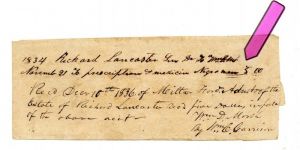 1834 Richard Lancaster
Novemb 21 To prescription & medicin Negro 5 00
Rec'd Decr 10th 1836 of Milton
Estate of Richard Lancaster dec'd five dollars in full
of the above acct.
Wm D.
By Wm C. Garrison